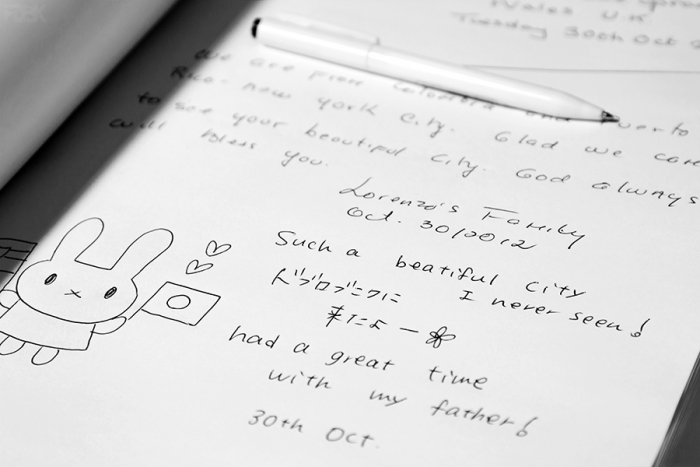 Wales U.K
Tuesday 30th Oct
We are from Colombia and Puerto
Rico - New York City. Glad we came
to see your beautiful city. God always
will bless you.
Lorenzo's Family
Oct. 30/2012
Such a beatiful city
I never seen!
ドブロブニクに
来たよー
had a great time
with my father!
30th Oct.